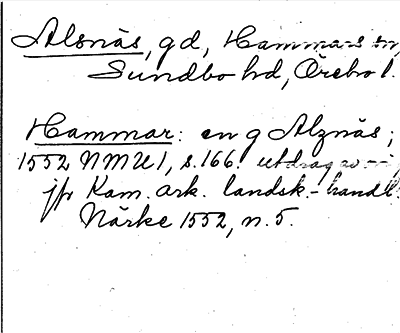 Alsnäs, gd, Hammars sn,
Sundbo hd, Örebro l.
Hammar: en g Alznäs;
1552 NMU1, s.166. utdrag av
jfr Kam. ark. landsk.-handl.
Närke 1552, n. 5.